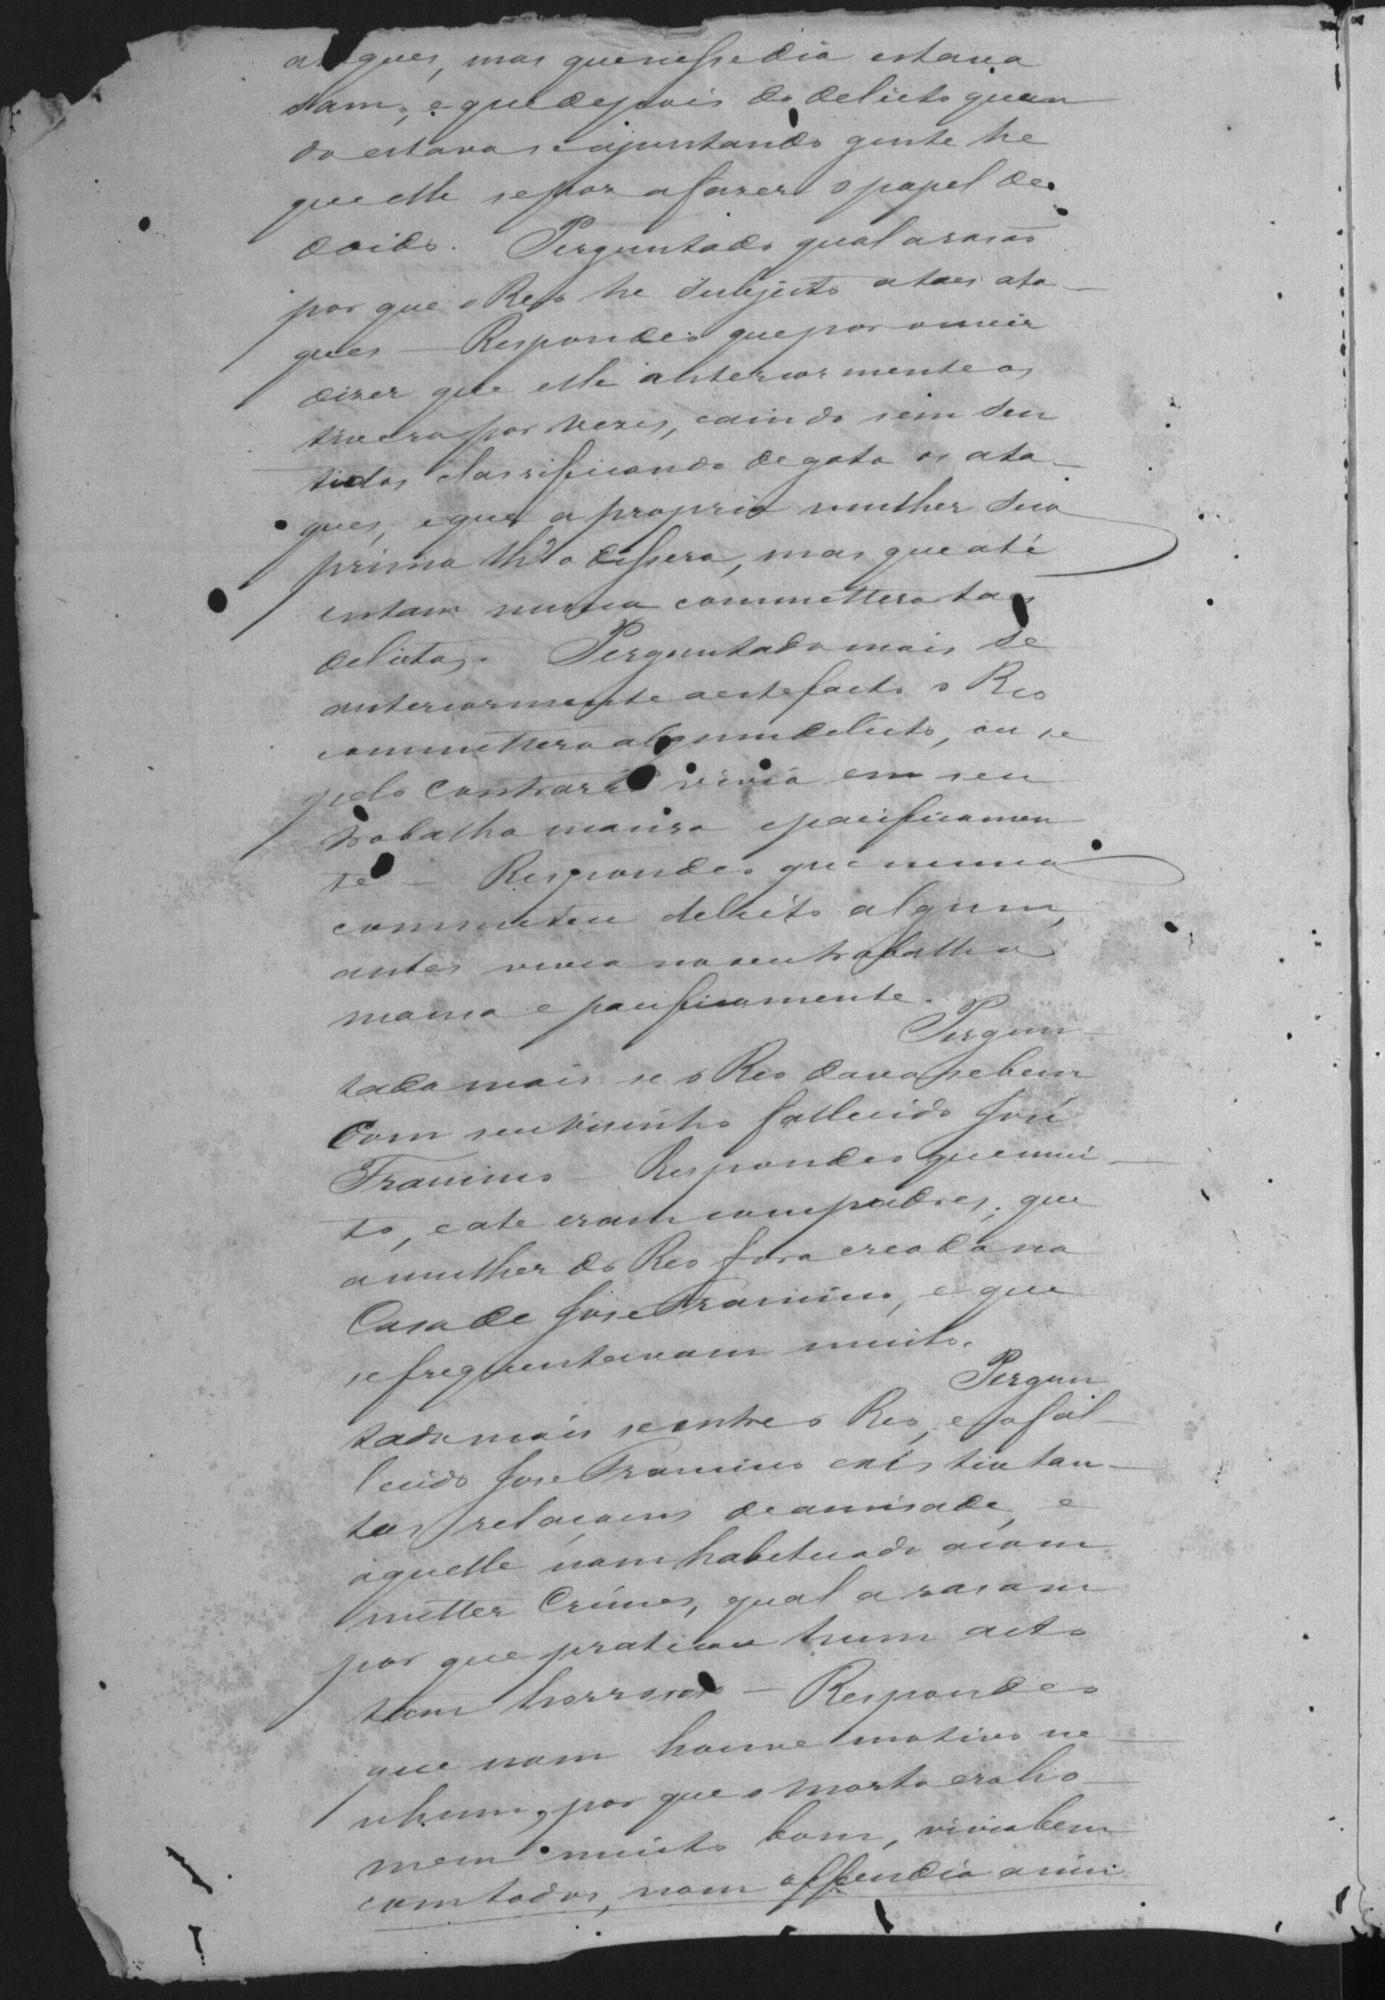 ataques, mas que nesse dia estava
sam, e que depois do delicto quan
do estava se ajuntando gente he
que elle se pos a faser o papel de
doido. Perguntado qual a rasão
por que o Reo he subjeito a taes ata-
ques — Respondeo que por ouvir
diser que elle anteriormente os
tivera por veses, caindo sem sen
tidos classificando de gota os ata-
ques, e que a propria mulher sua
prima lh'o dissera, mas que até
entam nunca commettera taes
delictos. Perguntado mais se
anteriormente a este facto o Reo
commettera algum delicto, ou se
pelo contrario vivia em seu
trabalho manso e pacificamen
te — Respondeo que nunca
commeteu delicto algum,
antes vivia no seu trabalho
manso e pacificamente.
Pergun-
tado mais se o Reo dava se bem
Com seu visinho fallecido José
Framino — Respondeo que mui-
to, e ate eram compadres; que
a mulher do Reo fora creada na
Casa de Jose Framino, e que
se frequentavam muito.
Pergun
tado mais se entre o Reo, e o fal-
lecido Jose Framino existia tan-
tas relaçoens de amisade, e
aquelle nam habituado a com
metter Crimes, qual a rasam
por que praticou hum acto
tam horroroso — Respondeo
que nam houve motivo ne-
nhum, por que o morto era ho-
mem muito bom, vivia bem
com todos, nam offendia a nin